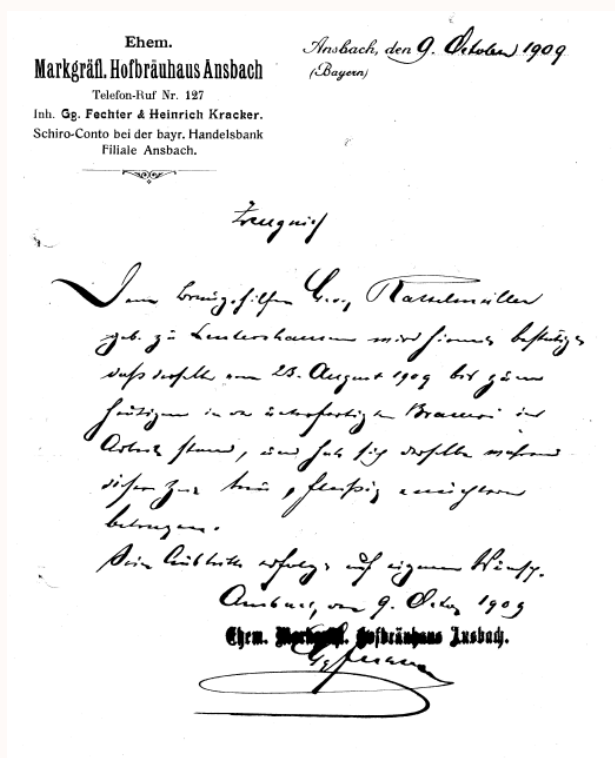 Ehem.
Markgräfl. Hofbräuhaus Ansbach
Telefon-Ruf Nr. 127
Inh. Gg. Fechter & Heinrich Kracker.
Schiro-Conto bei der bayr. Handelsbank
Filiale Ansbach.
Ansbach, den 9. Oktober 1909
(Bayern)
Zeugniß
Dem Georg Kasselmüller
geb. zu Leutershausen wird hiermit bestätigt
daß derselbe vom 23. August 1909 bis zum
heutigen in der unterfertigten Brauerei in
Arbeit stand, und hat sich derselbe während
dieser Zeit treu, fleißig & nüchtern
betragen.
Sein Austritt erfolgt auf eigenen Wunsch.
Ansbach, den 9. Oktob 1909
Ehem. Markgräfl. Hofbräuhaus Ansbach.